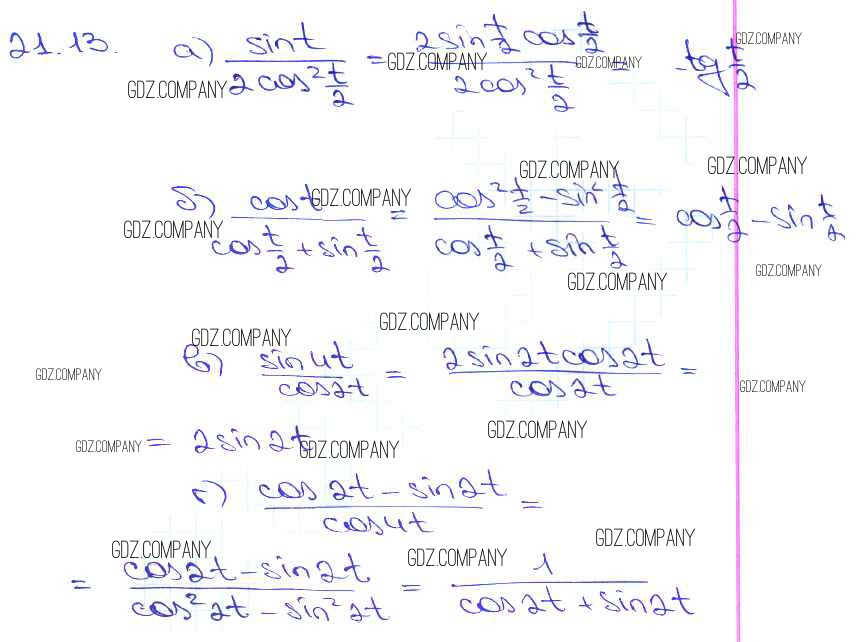 21.13. а) sin t / 2cos² t/2 = 2sin t/2 cos t/2 / 2cos² t/2 = tg t/2
GDZ.COMPANY GDZ.COMPANY GDZ.COMPANY GDZ.COMPANY
GDZ.COMPANY GDZ.COMPANY
б) cos t / cos t/2 + sin t/2 = cos² t/2 - sin² t/2 / cos t/2 + sin t/2 = cos t/2 - sin t/2
GDZ.COMPANY GDZ.COMPANY
GDZ.COMPANY GDZ.COMPANY
GDZ.COMPANY GDZ.COMPANY
в) sin 4t / cos 2t = 2 sin 2t cos 2t / cos 2t =
GDZ.COMPANY GDZ.COMPANY
= 2 sin 2t
GDZ.COMPANY GDZ.COMPANY GDZ.COMPANY
г) cos 2t - sin 2t / cos 4t =
GDZ.COMPANY GDZ.COMPANY GDZ.COMPANY
= cos 2t - sin 2t / cos² 2t - sin² 2t = 1 / cos 2t + sin 2t